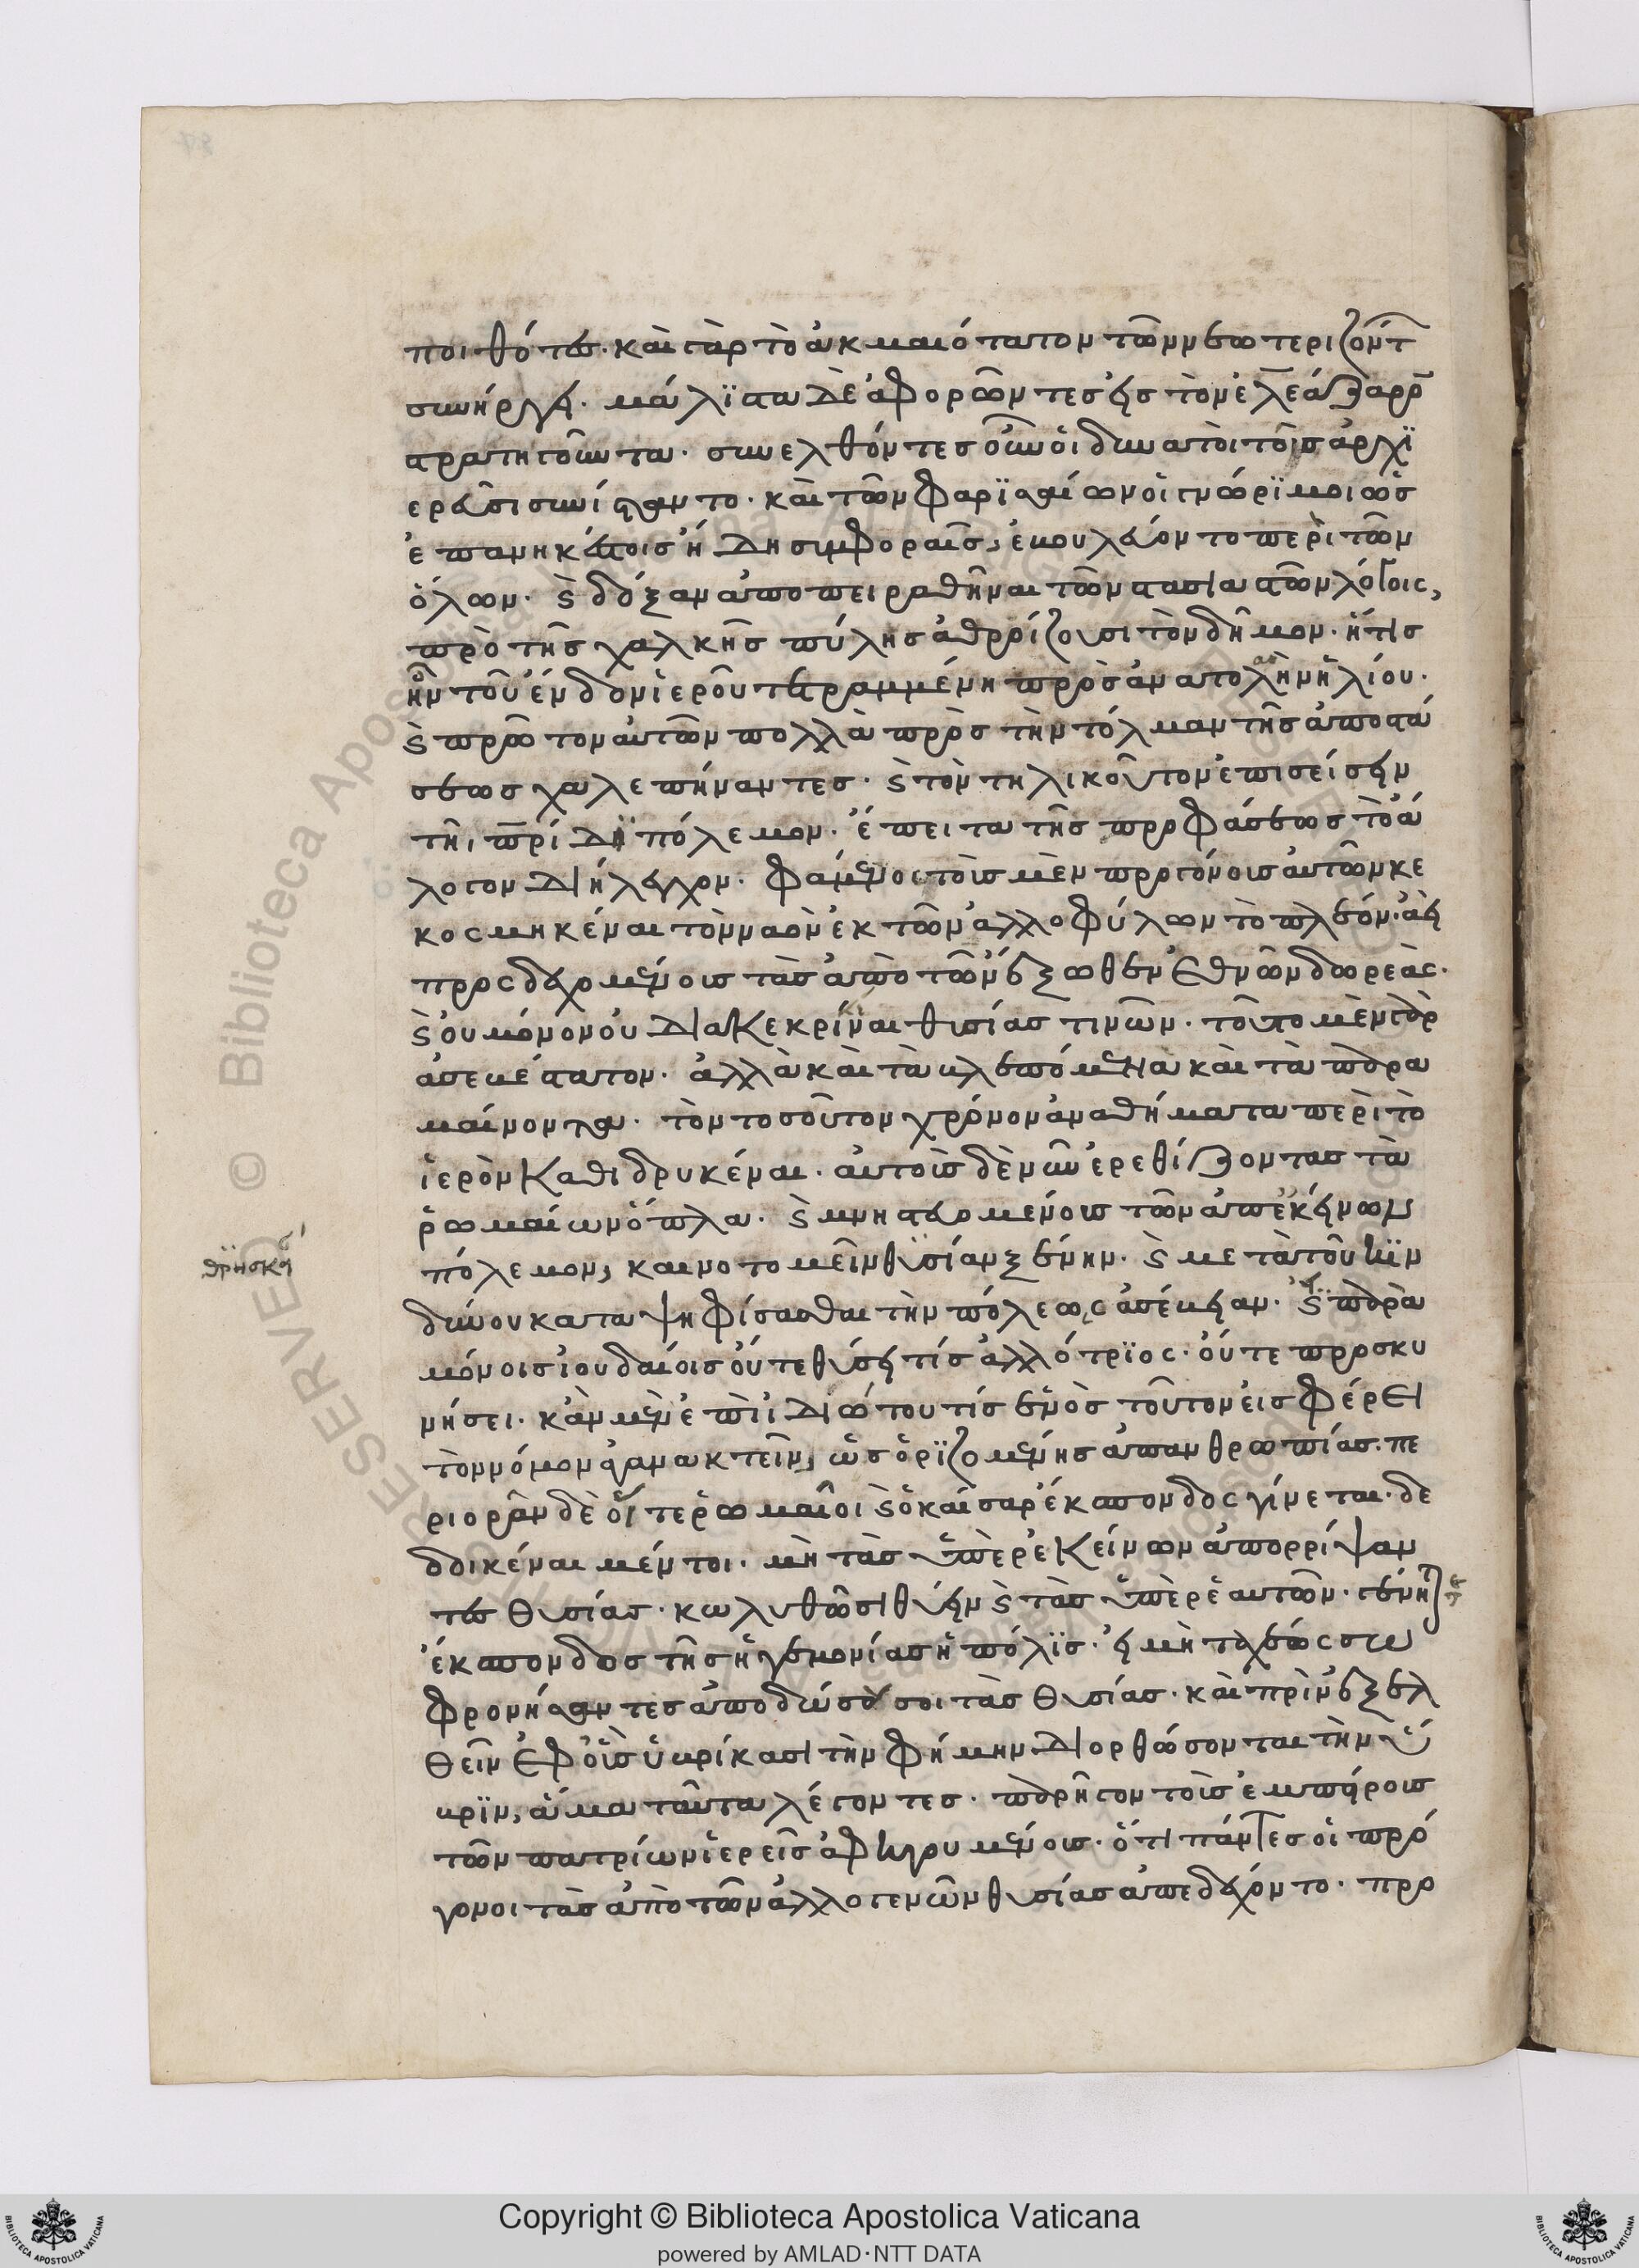 ποιθότες. καὶ γὰρ τὸ ἀκμαιότατον τῶν νεωτεριζόντ
συνήργει. μάλιστα δὲ ἀφορῶντες εἰς τὸν ἐλεάζαρο
στρατηγοῦντα. συνελθόντες οὖν οἱ δυνατοὶ τοῖς ἀρχϊ
ερεῦσι συνίσταντο. καὶ τῶν φαρϊσαίων οἱ γνώρϊμοι ὡς
ἐπ ἀνηκέστοις ἤδη συμφοραῖς, ἐβουλεύοντο περὶ τῶν
ὅλων. ϛ δόξαν ἀποπειραθῆναι τῶν στασιαστῶν λόγοις,
πρὸ τῆς χαλκῆς πύλης ἀθροίζουσι τὸν δῆμον. ἥτις
ἦν τοῦ ἔνδον ἱεροῦ τετραμμένη πρὸς ἀνατολὴν ἡλίου.
ϛ πρῶτον αὐτῶν πολλὰ πρὸς τὴν τόλμαν τῆς ἀποστά
σεως χαλεπήναντες. ϛ τὸν τηλικοῦτον ἐπισείσειν
τῆι πρίδϊ πόλεμον. ἔπειτα τῆς προφάσεως τὸ ἄ
λογον διήλεγχον. φάμενοι τοὺς μὲν προγόνους αὐτῶν κε
κοσμηκέναι τὸν ναὸν ἐκ τῶν ἀλλοφύλων τὸ πλέον. ἀεὶ
προσδεχομένους τὰς ἀπὸ τῶν ἔξωθεν ἐθνῶν δωρεάς.
ϛ οὐ μόνον οὐ διακεκρίναι θυσίας τινῶν. τοῦτο μὲν γὰρ
ἀσεβέστατον. ἀλλὰ καὶ τὰ βλεπόμενα καὶ τὰ παρα
μαίνοντα. τὸν τοσοῦτον χρόνον ἀναθήματα περὶ τὸ
ἱερὸν καθιδρυκέναι. αὐτοὺς δὲ νῦν ἐρεθίζοντας τὰ
ῥωμαίων ὅπλα. ϛ μνηστευομένους τῶν ἀπ ἐκείνων
πόλεμον, καινοτομεῖν θυσίαν ξένην. ϛ μετὰ τοῦ κϊν
θρησκεί
δύνου καταψηφίσασθαι τὴν πόλεως ἀσέβειαν. παρὰ
μόνοις ἰουδαίοις οὔτε θύσει τίς ἀλλότρϊος. οὔτε προσκυ
νήσει. κἂν μὲν ἐπὶ ἰδιώτου τίς ἑνὸς τοῦτον εἰσφέρει
τὸν νόμον ἀγανακτεῖν, ὡς ὁρϊζομένης ἀπανθρωπίας. πε
ριορᾶν δὲ ὅτε ῥωμαῖοι ϛ ὁ καῖσαρ ἔκσπονδος γίνεται. δε
δοικέναι μέντοι. μὴ τὰς ὑπὲρ ἐκείνων ἀπορρίψαν
τες θυσίας. κωλυθῶσι θύειν ϛ τὰς ὑπὲρ ἑαυτῶν. γένητ
ἔκσπονδος τῆς ἡγεμονίας ἡ πόλϊς. εἰ μὴ ταχέως σω
φρονήσαντες ἀποδώσουσι τὰς θυσίας. καὶ πρὶν ἐξελ
θεῖν ἐφ οἷς ὑβρίκασι τὴν φήμην διορθώσονται τὴν ὕ
βρϊν, ἅμα ταῦτα λέγοντες. παρῆγον τοὺς ἐμπείρους
τῶν πατρίων ἱερεῖς ἀφηγουμένους. ὅτι πάντες οἱ πρό
γονοι τὰς ἀπὸ τῶν ἀλλογενῶν θυσίας ἀπεδέχοντο. προ
Copyright © Biblioteca Apostolica Vaticana
powered by AMLAD·NTT DATA